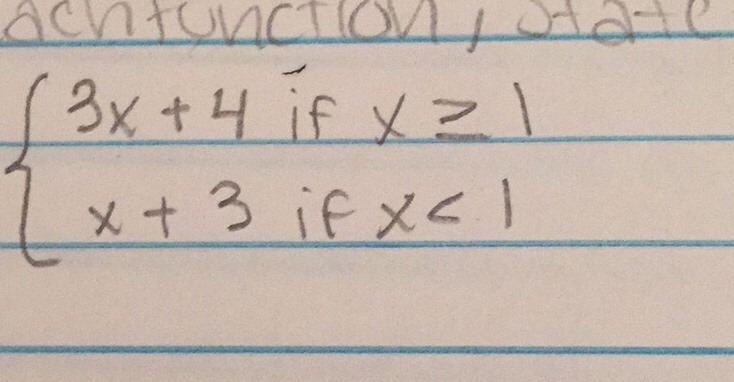 function, state
3x + 4 if x ≥ 1
x + 3 if x < 1